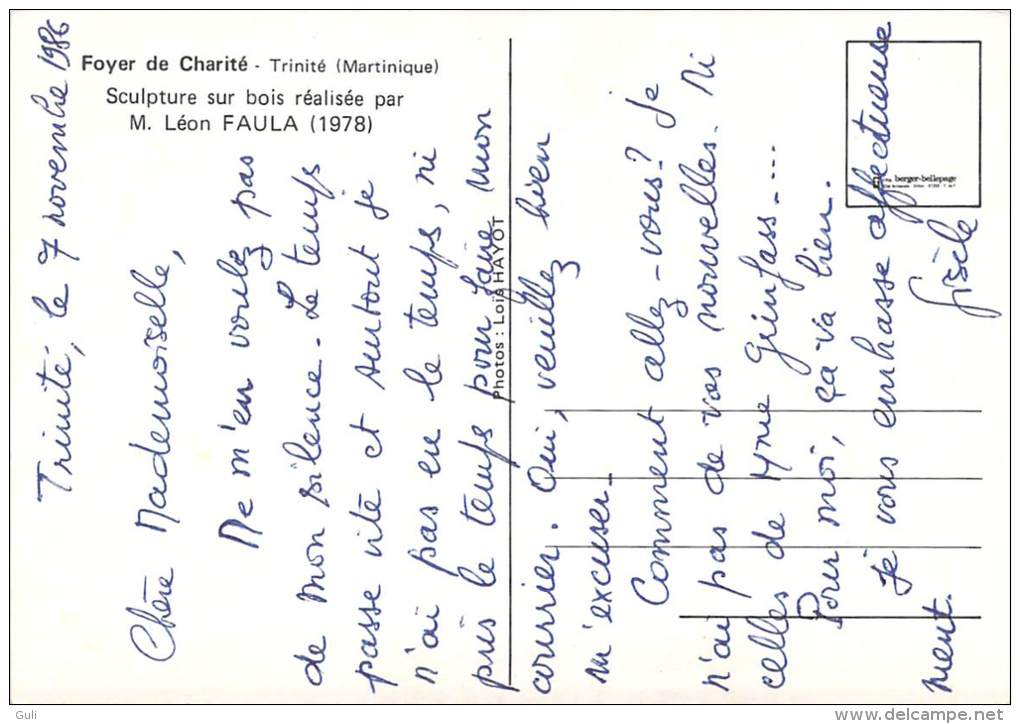 Foyer de Charité - Trinité (Martinique)
Sculpture sur bois réalisée par
M. Léon FAULA (1978)
Photos : Loïs HAYOT
berger-bellepage
Trinité, le 7 novembre 1986
Chère Mademoiselle,
Ne m'en voulez pas
de mon silence. Le temps
passe vite et surtout je
n'ai pas eu le temps, ni
pris le temps pour faire mon
courrier. Oui, veuillez bien
m'excuser_
Comment allez-vous? Je
n'ai pas de vos nouvelles. Ni
celles de Mme Grinfass....
Pour moi, ça va bien.
Je vous embrasse affectueuse
ment. Gisèle
Guli
www.delcampe.net